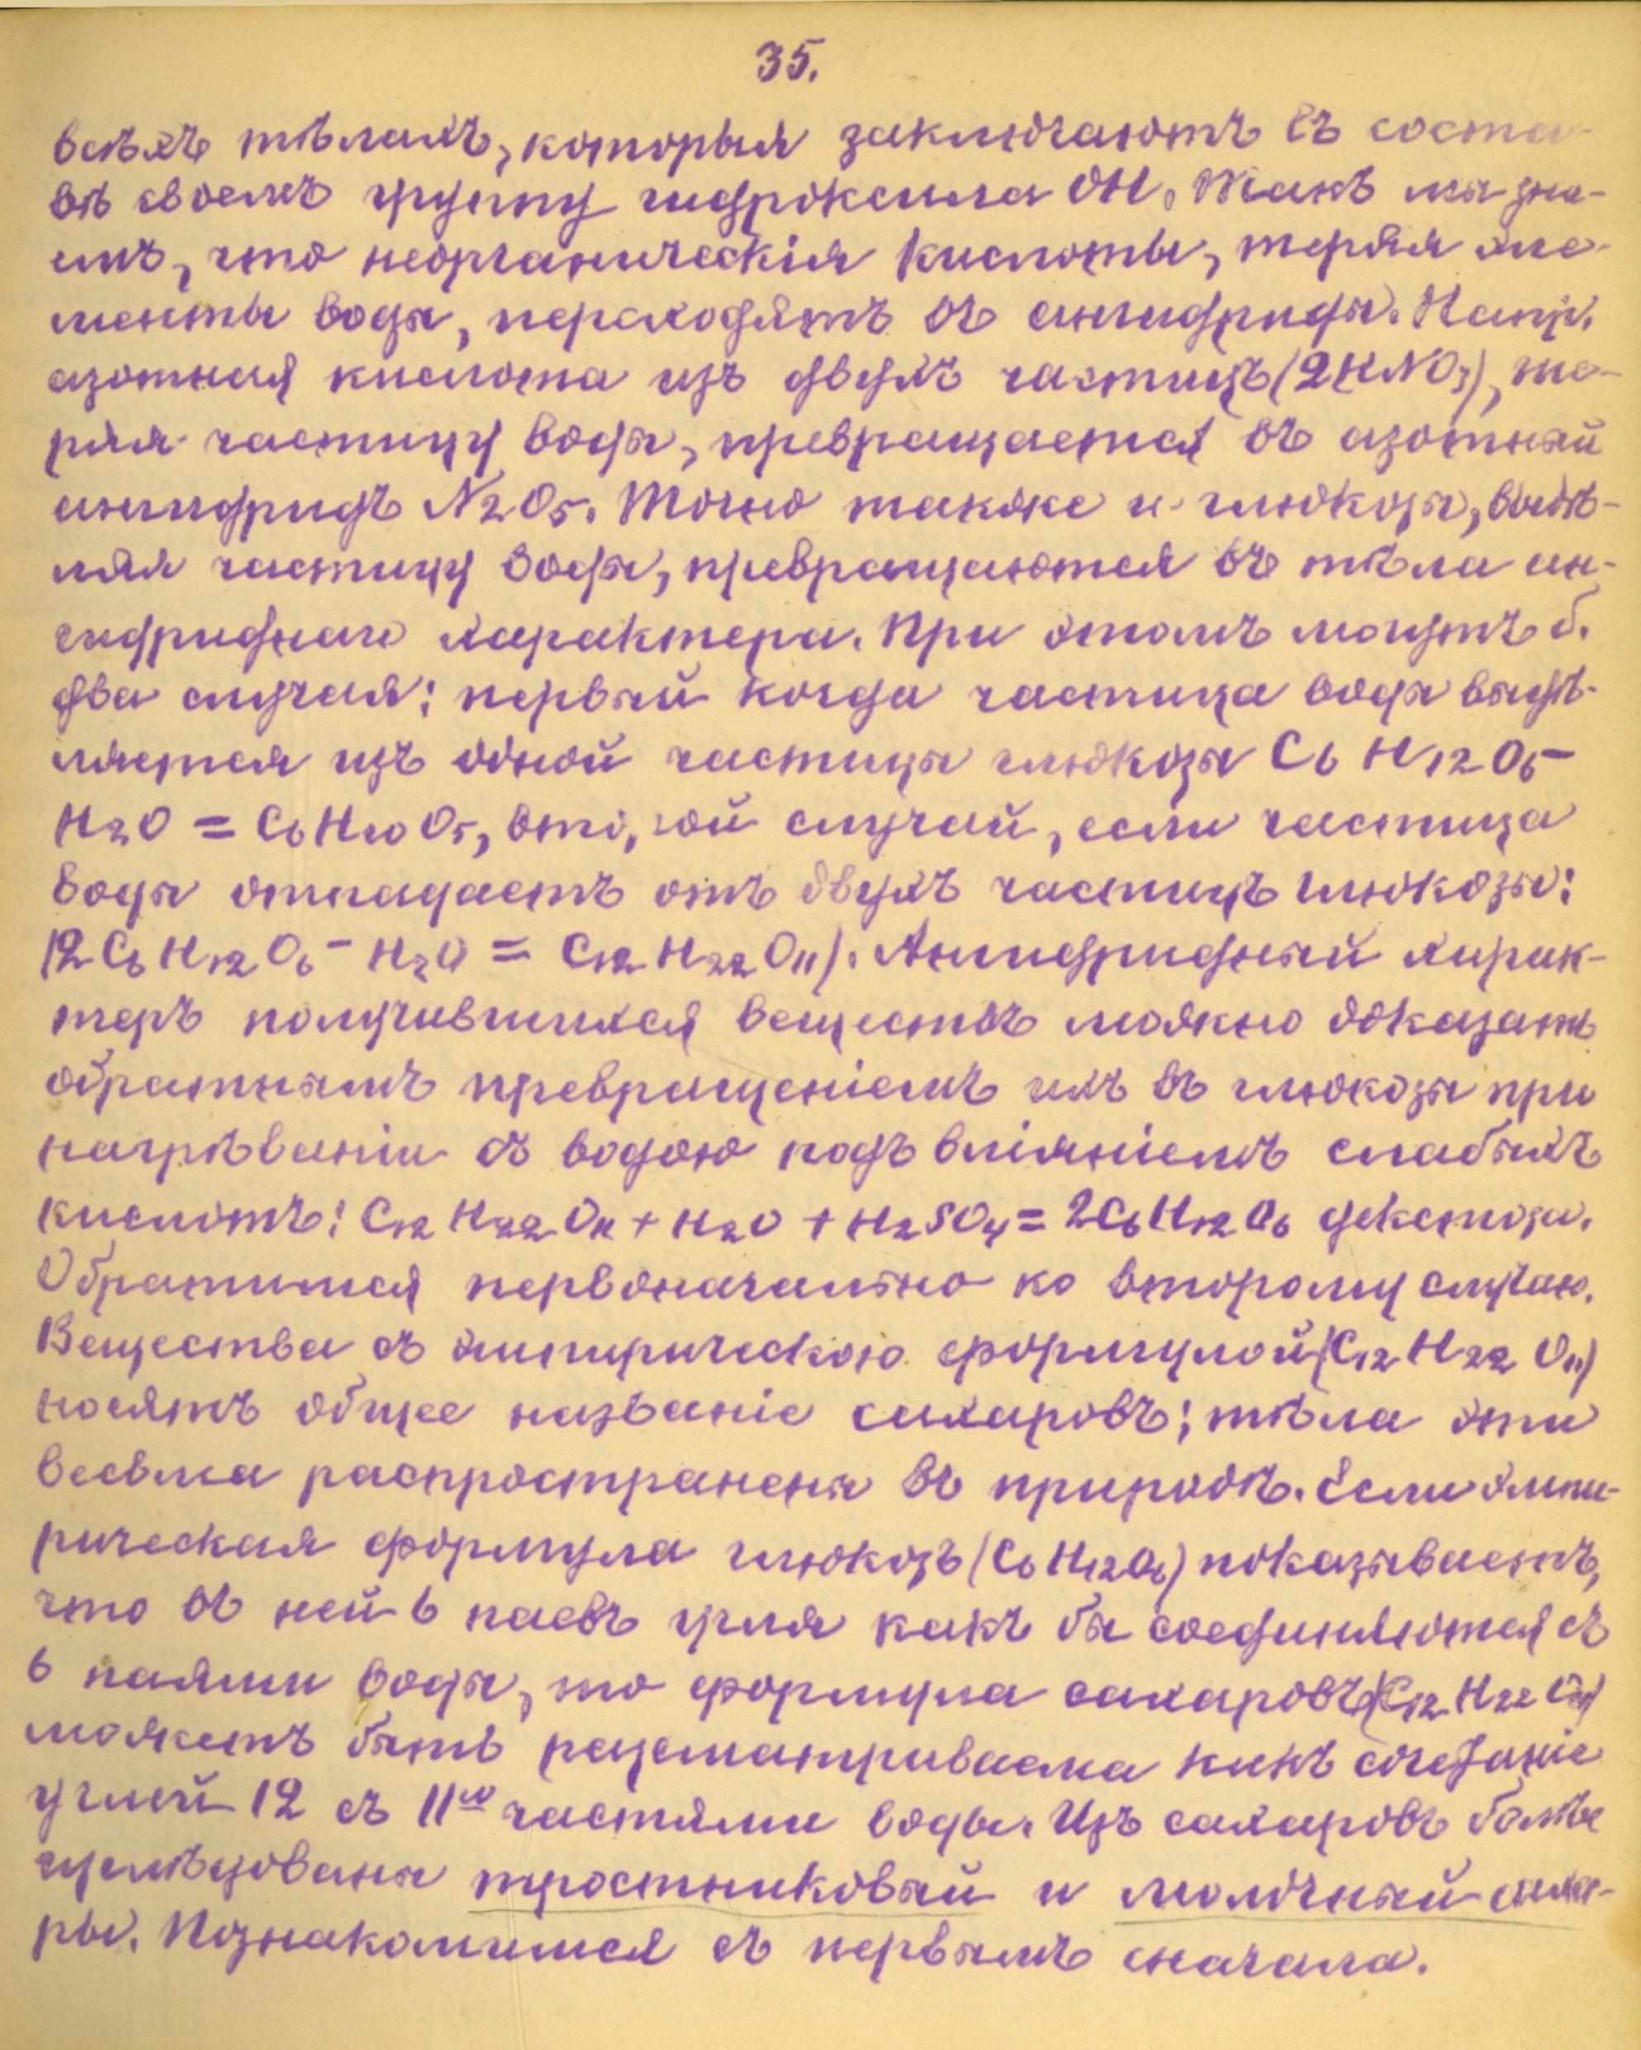 35.
всѣхъ тѣлахъ, которыя заключаютъ въ соста-
вѣ своемъ группу гидроксила ОН. Такъ мы зна-
емъ, что неорганическія кислоты, теряя эле-
менты воды, переходятъ въ ангидриды. Напр.
азотная кислота изъ двухъ частицъ (2HNO3), те-
ряя частицу воды, превращается въ азотный
ангидридъ N2O5. Точно также и глюкозы, выдѣ-
ляя частицу воды, превращаются въ тѣла ан-
гидриднаго характера. При этомъ могутъ б.
два случая: первый когда частица воды выдѣ-
ляется изъ одной частицы глюкозы C6H12O6 –
H2O = C6H10O5, второй случай, если частица
воды отпадаетъ отъ двухъ частицъ глюкозы:
(2C6H12O6 – H2O = C12H22O11). Ангидридный харак-
теръ получившихся веществъ можно доказать
обратнымъ превращеніемъ ихъ въ глюкозы при
нагрѣваніи съ водою подъ вліяніемъ слабыхъ
кислотъ: C12H22O11 + H2O + H2SO4 = 2C6H12O6 декстоза.
Обратимся первоначально ко второму случаю.
Вещества съ эмпирическою формулой (C12H22O11)
носятъ общее названіе сахаровъ; тѣла эти
весьма распространены въ природѣ. Если эмпи-
рическая формула глюкозъ (C6H12O6) показываетъ,
что въ ней 6 паевъ угля какъ бы соединяются съ
6 паями воды, то формула сахаровъ (C12H22O11)
можетъ быть разсматриваема какъ сочетаніе
углей 12 съ 11ю частями воды. Изъ сахаровъ болѣе
изслѣдованы тростниковый и молочный саха-
ры. Познакомимся съ первымъ сначала.